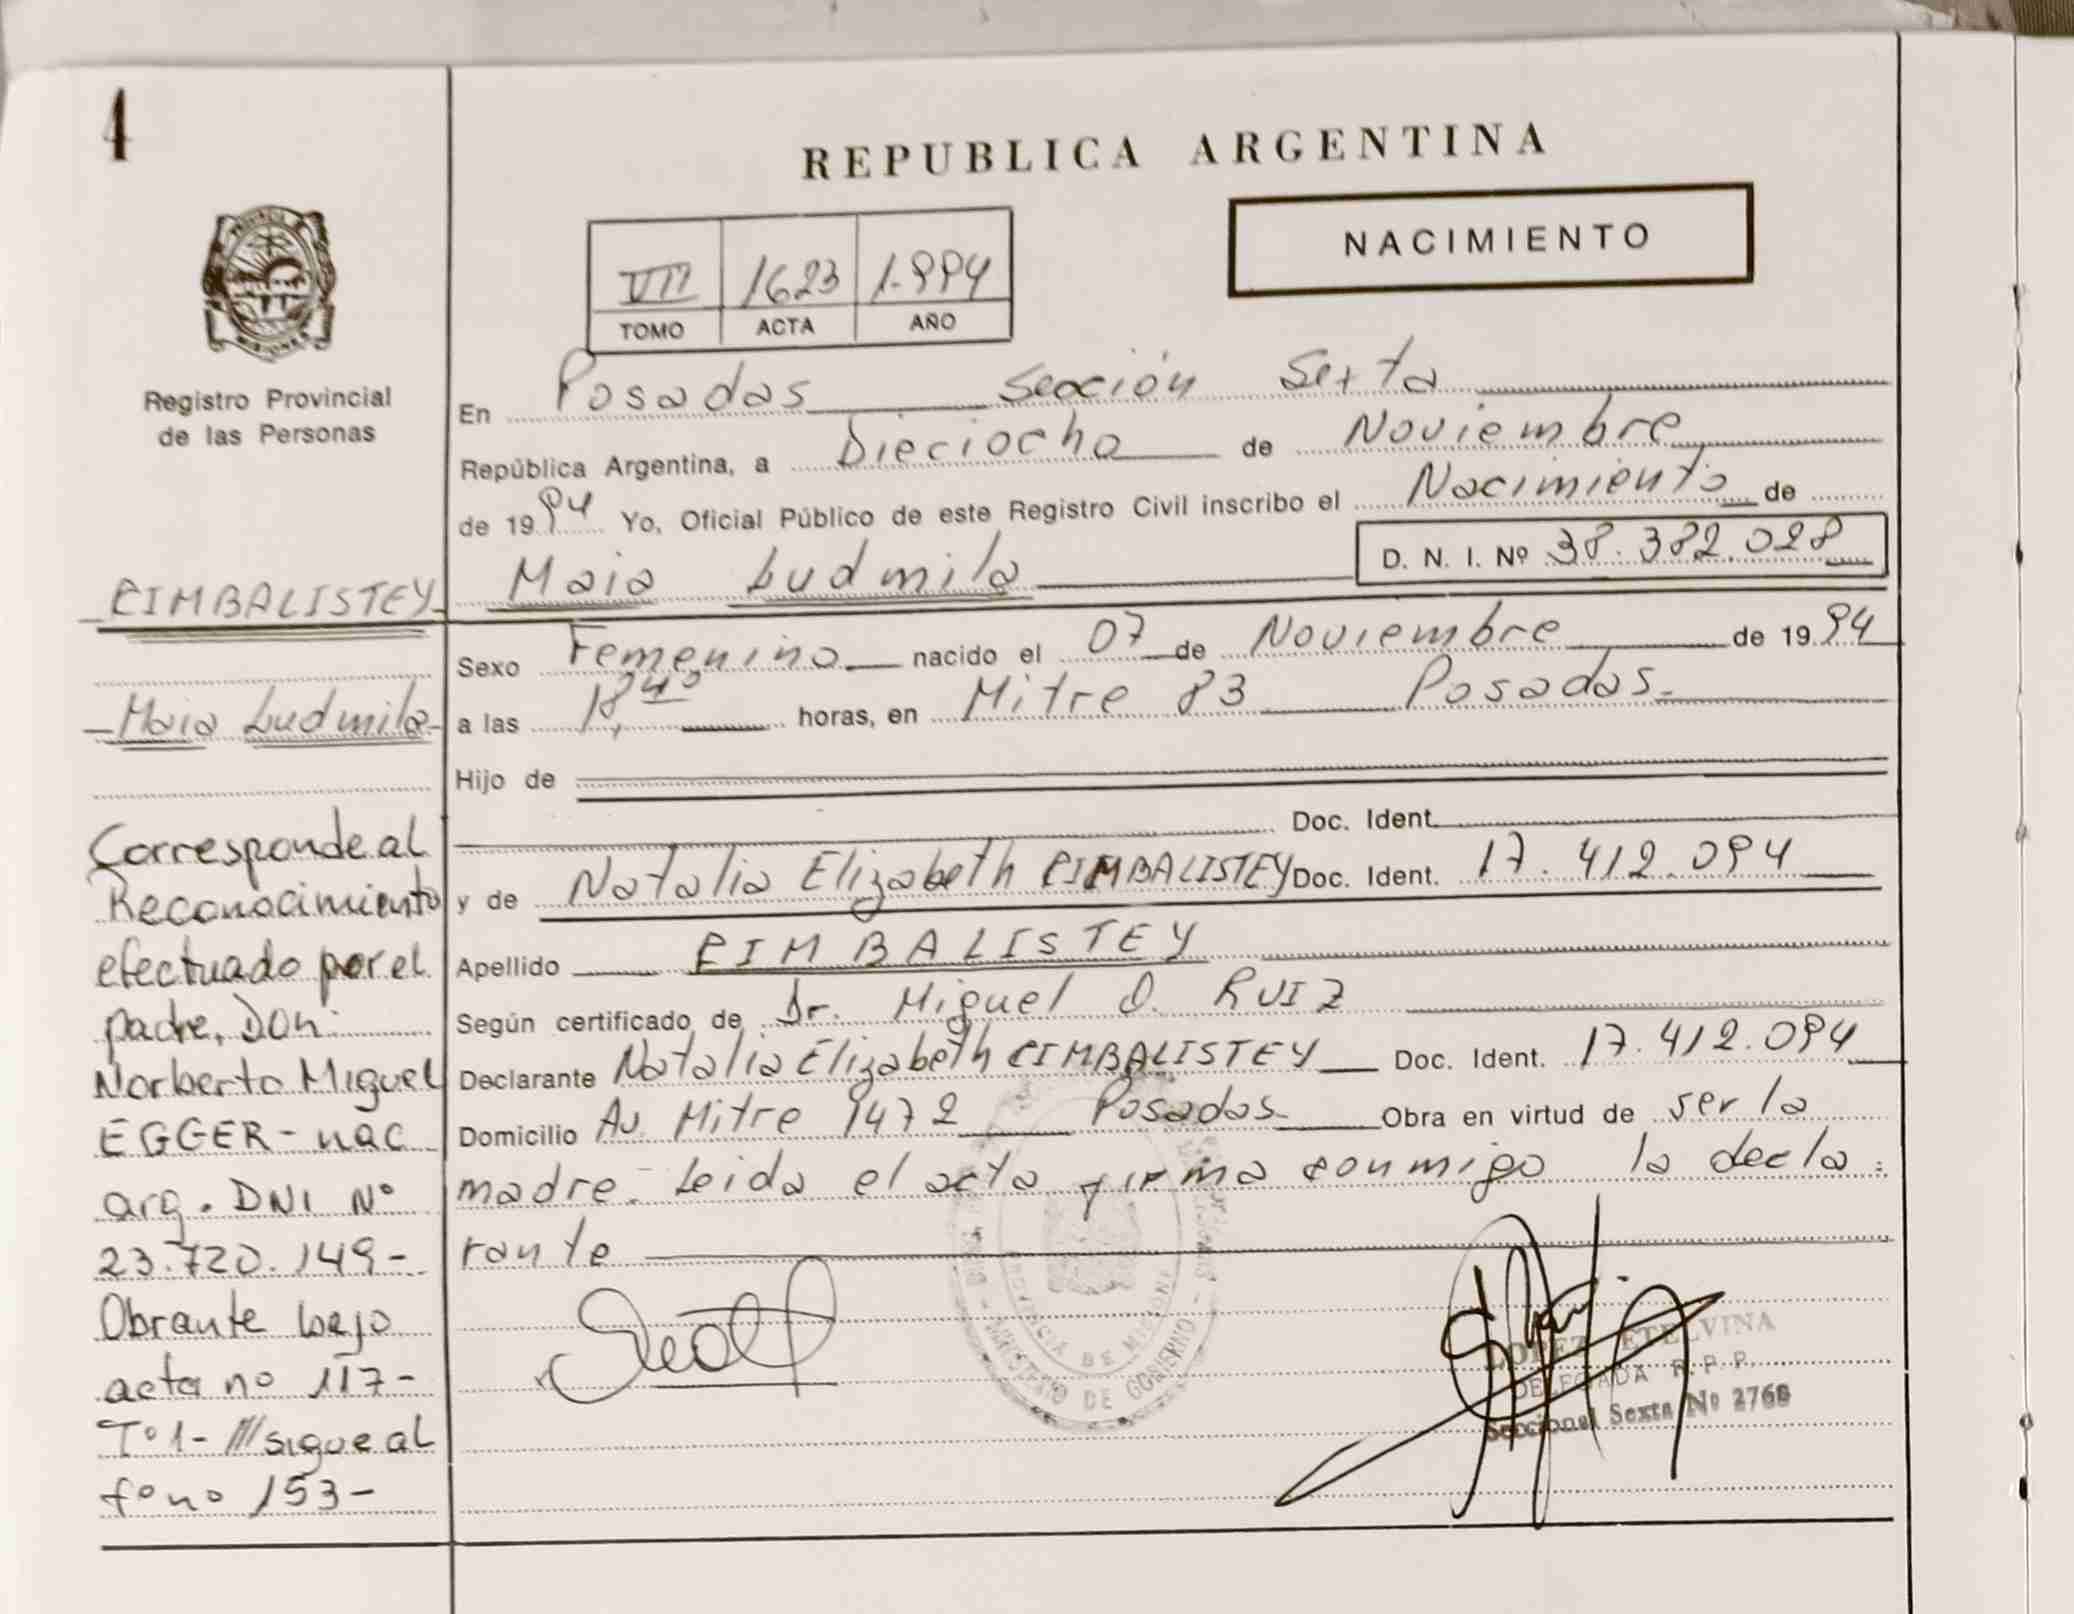 4
REPUBLICA ARGENTINA
NACIMIENTO
VII 1623 1.994
TOMO ACTA AÑO
Registro Provincial
de las Personas
En Posadas Sección Sexta
República Argentina, a Dieciocho de Noviembre
de 1994 Yo, Oficial Público de este Registro Civil inscribo el Nacimiento de
D. N. I. Nº 38.382.028
Maia Ludmila
CIMBALISTEY
Maia Ludmila
Sexo Femenino nacido el 07 de Noviembre de 1994
a las 18,40 horas, en Mitre 83 Posadas
Hijo de
Doc. Ident.
y de Natalia Elizabeth CIMBALISTEY Doc. Ident. 17.412.094
Apellido CIMBALISTEY
Según certificado de Dr. Miguel O. RUIZ
Declarante Natalia Elizabeth CIMBALISTEY Doc. Ident. 17.412.094
Domicilio Av. Mitre 1472 Posadas Obra en virtud de ser la
madre. Leida el acta firma conmigo la decla
rante
Corresponde al
Reconocimiento
efectuado por el
padre, Don:
Norberto Miguel
EGGER - nac
arg. DNI Nº
23.720.149-
Obrante bajo
acta nº 117-
Tº1- /// sigue al
fº nº 153-
PROVINCIA DE MISIONES
MINISTERIO DE GOBIERNO
LOPEZ ETELVINA
DELEGADA R. P. P.
Seccional Sexta Nº 2768